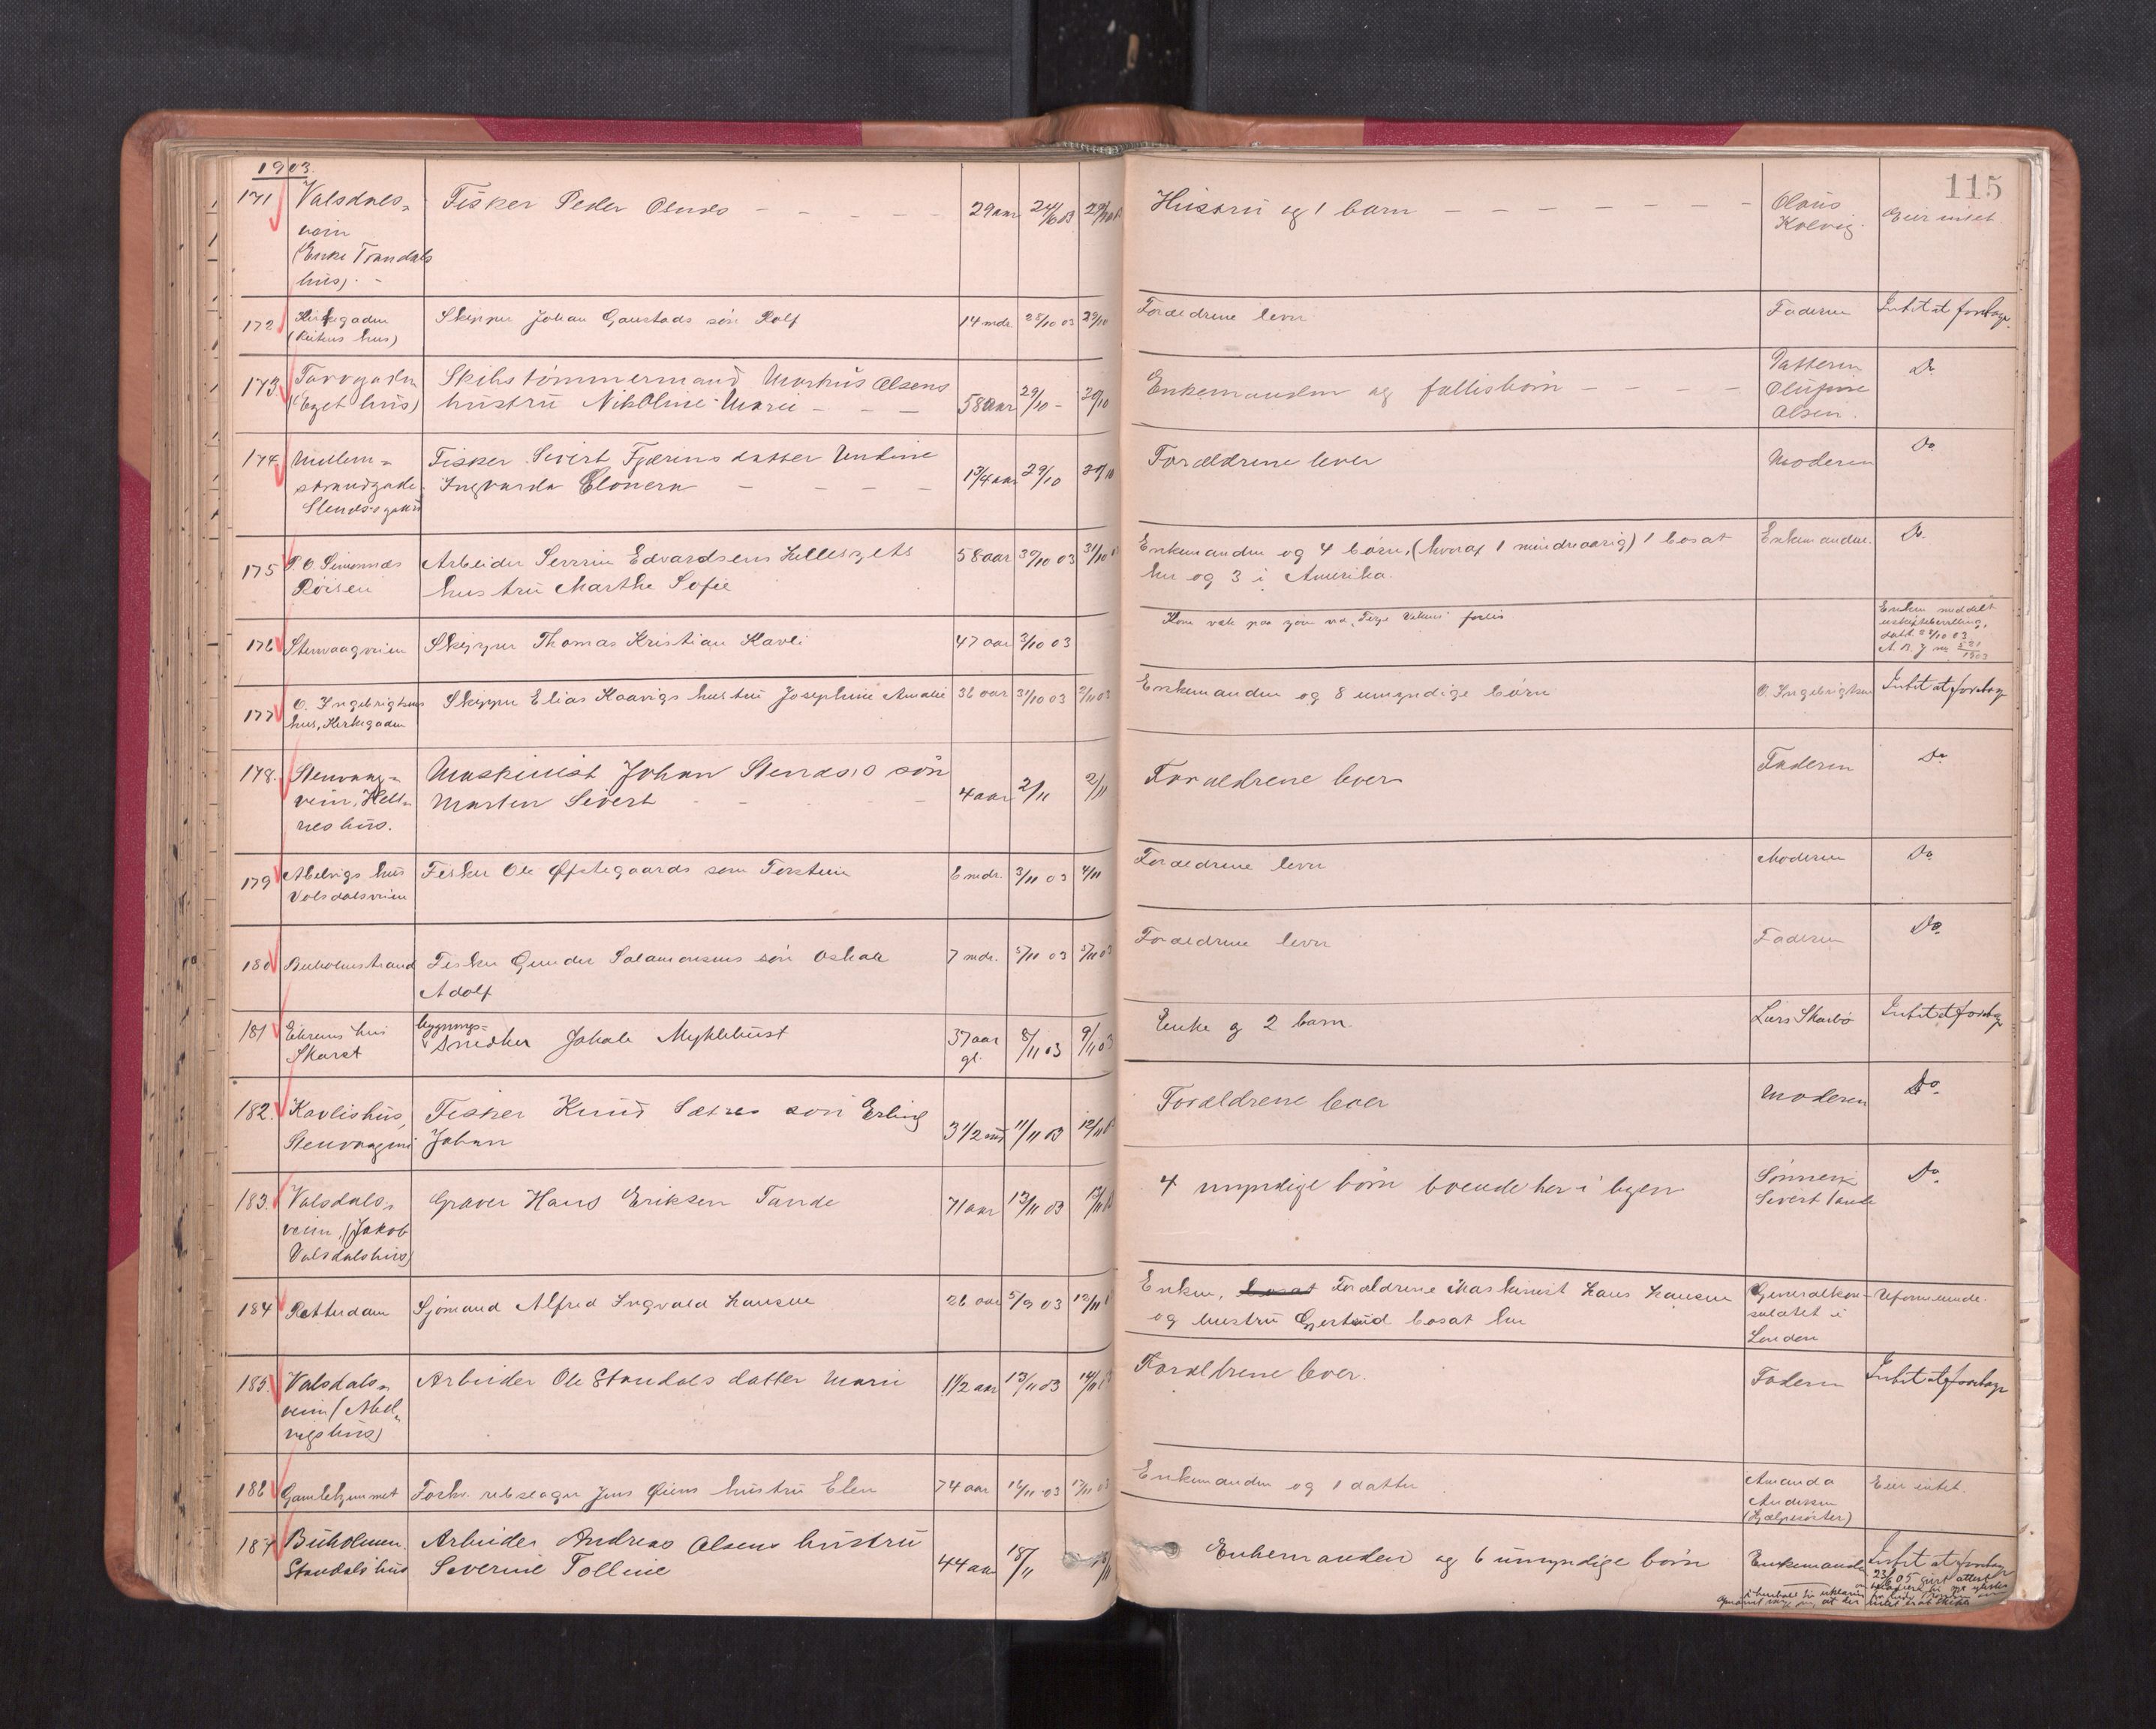 1903.
115
171 Valsdals- Fisker Peder Olsnes - - - - - 29 aar 24/10 03 29/10 03 Hustru og 1 barn - - - - - - - Olaus Eier intet.
veien Kolvig.
(Enke Trandals
hus). -
172 Kirkegaden Skipper Johan Gaustads søn Rolf 14 mdr 28/10 03 29/10 Forældrene lever Faderen Intet at foretage.
(Keiteus hus)
173. Tarvgaden Skibstømmermand Markus Olsens Datteren Do
(Eget hus) hustru Nikoline Marie - - - 58 aar 29/10 - 30/10 Enkemanden og fællisbørn - - - - Olufine
Olsen.
174. Mellem- Fisker Sivert Fjærens datter Undine Forældrene lever Moderen Do
strandgade Ingvarda Elonera - - - - 1 3/4 aar 29/10 30/10
Stends-gaard
175 P. O. Simonnæs Arbeider Severin Edvardsens Hellesylts 58 aar 30/10 03 31/10 03 Enkemanden og 4 børn, (hvoraf 1 mindreaarig) 1 bosat Enkemanden. Do.
Röisen hustru Marthe Sofie her og 3 i Amerika.
176 Stenvaagveien Skipper Thomas Kristian Kavli 47 aar 3/10 03 Kom væk paa sjøen ved forlis Enken meddelt
uskiftebevilling,
datt 28/10 03
A. R. J no 521/1903
177 O. Ingebrigtsens Skipper Elias Kaarigs hustru Josephine Amalie 36 aar 31/10 03 2/11 03 Enkemanden og 8 umyndige børn O. Ingebrigtsen Intet at foretage
hus, Kirkegaden
178. Stenvaag- Maskinist Johan Stendsø søn Forældrene lever Faderen Do
veien, Hell- Marten Sivert - - - 4 aar 2/11 2/11
nes hus.
179 Abelvigs hus Fisker Ole Øfstegaards søn Torstein 6 mdr. 3/11 03 4/11 Forældrene lever Moderen Do
Valsdalsveien
180 Buholmstrand Fisker Gunder Salamonsens søn Oskar 7 mdr. 5/11 03 5/11 03 Forældrene lever Faderen Do.
Adolf
181 Eikrems hus bygnings- Snedker Jakob Myklebust 37 aar 8/11 03 9/11 03 Enke og 2 barn. Lars Skarbö Intet at foretage
Skaret gl.
182. Kavlishus, Fisker Knud Sætres søn Erling Forældrene lever Moderen Do.
Stenvaagvei Johan 3 1/2 md 11/11 03 12/11 03
183. Valsdals- Graver Hans Eriksen Tande 71 aar 13/11 03 13/11 03 4 myndige børn boende her i byen Sønnen Do.
veien, (Jakob Sivert Tande
Valsdalshus)
184 Rotterdam Sjömand Alfred Ingvald Hansen 26 aar 5/9 03 12/11 Enken, bosat Forældrene Maskinist Hans Hansen Generalkon- Uformuende.
og hustru Gjertrud bosat her sulatet i
London
185. Valsdals- Arbeider Ole Standals datter Marie 1 1/2 aar 13/11 03 14/11 03 Forældrene lever. Faderen Intet at foretage
veien (Abel-
vigs hus)
186 Gamlehjemmet Forhv. rebslager Jens Øiens hustru Elen 74 aar 16/11 03 17/11 03 Enkemanden og 1 datter Amanda Eier intet.
Andersen
(Hjælpesöster)
187 Buholmen. Arbeider Andreas Olsens hustru Enkemanden og 6 umyndige børn Enkemanden Intet at foretage
Standals hus Severine Tolline 44 aar 18/11 18/11
23/6 05 givet attest